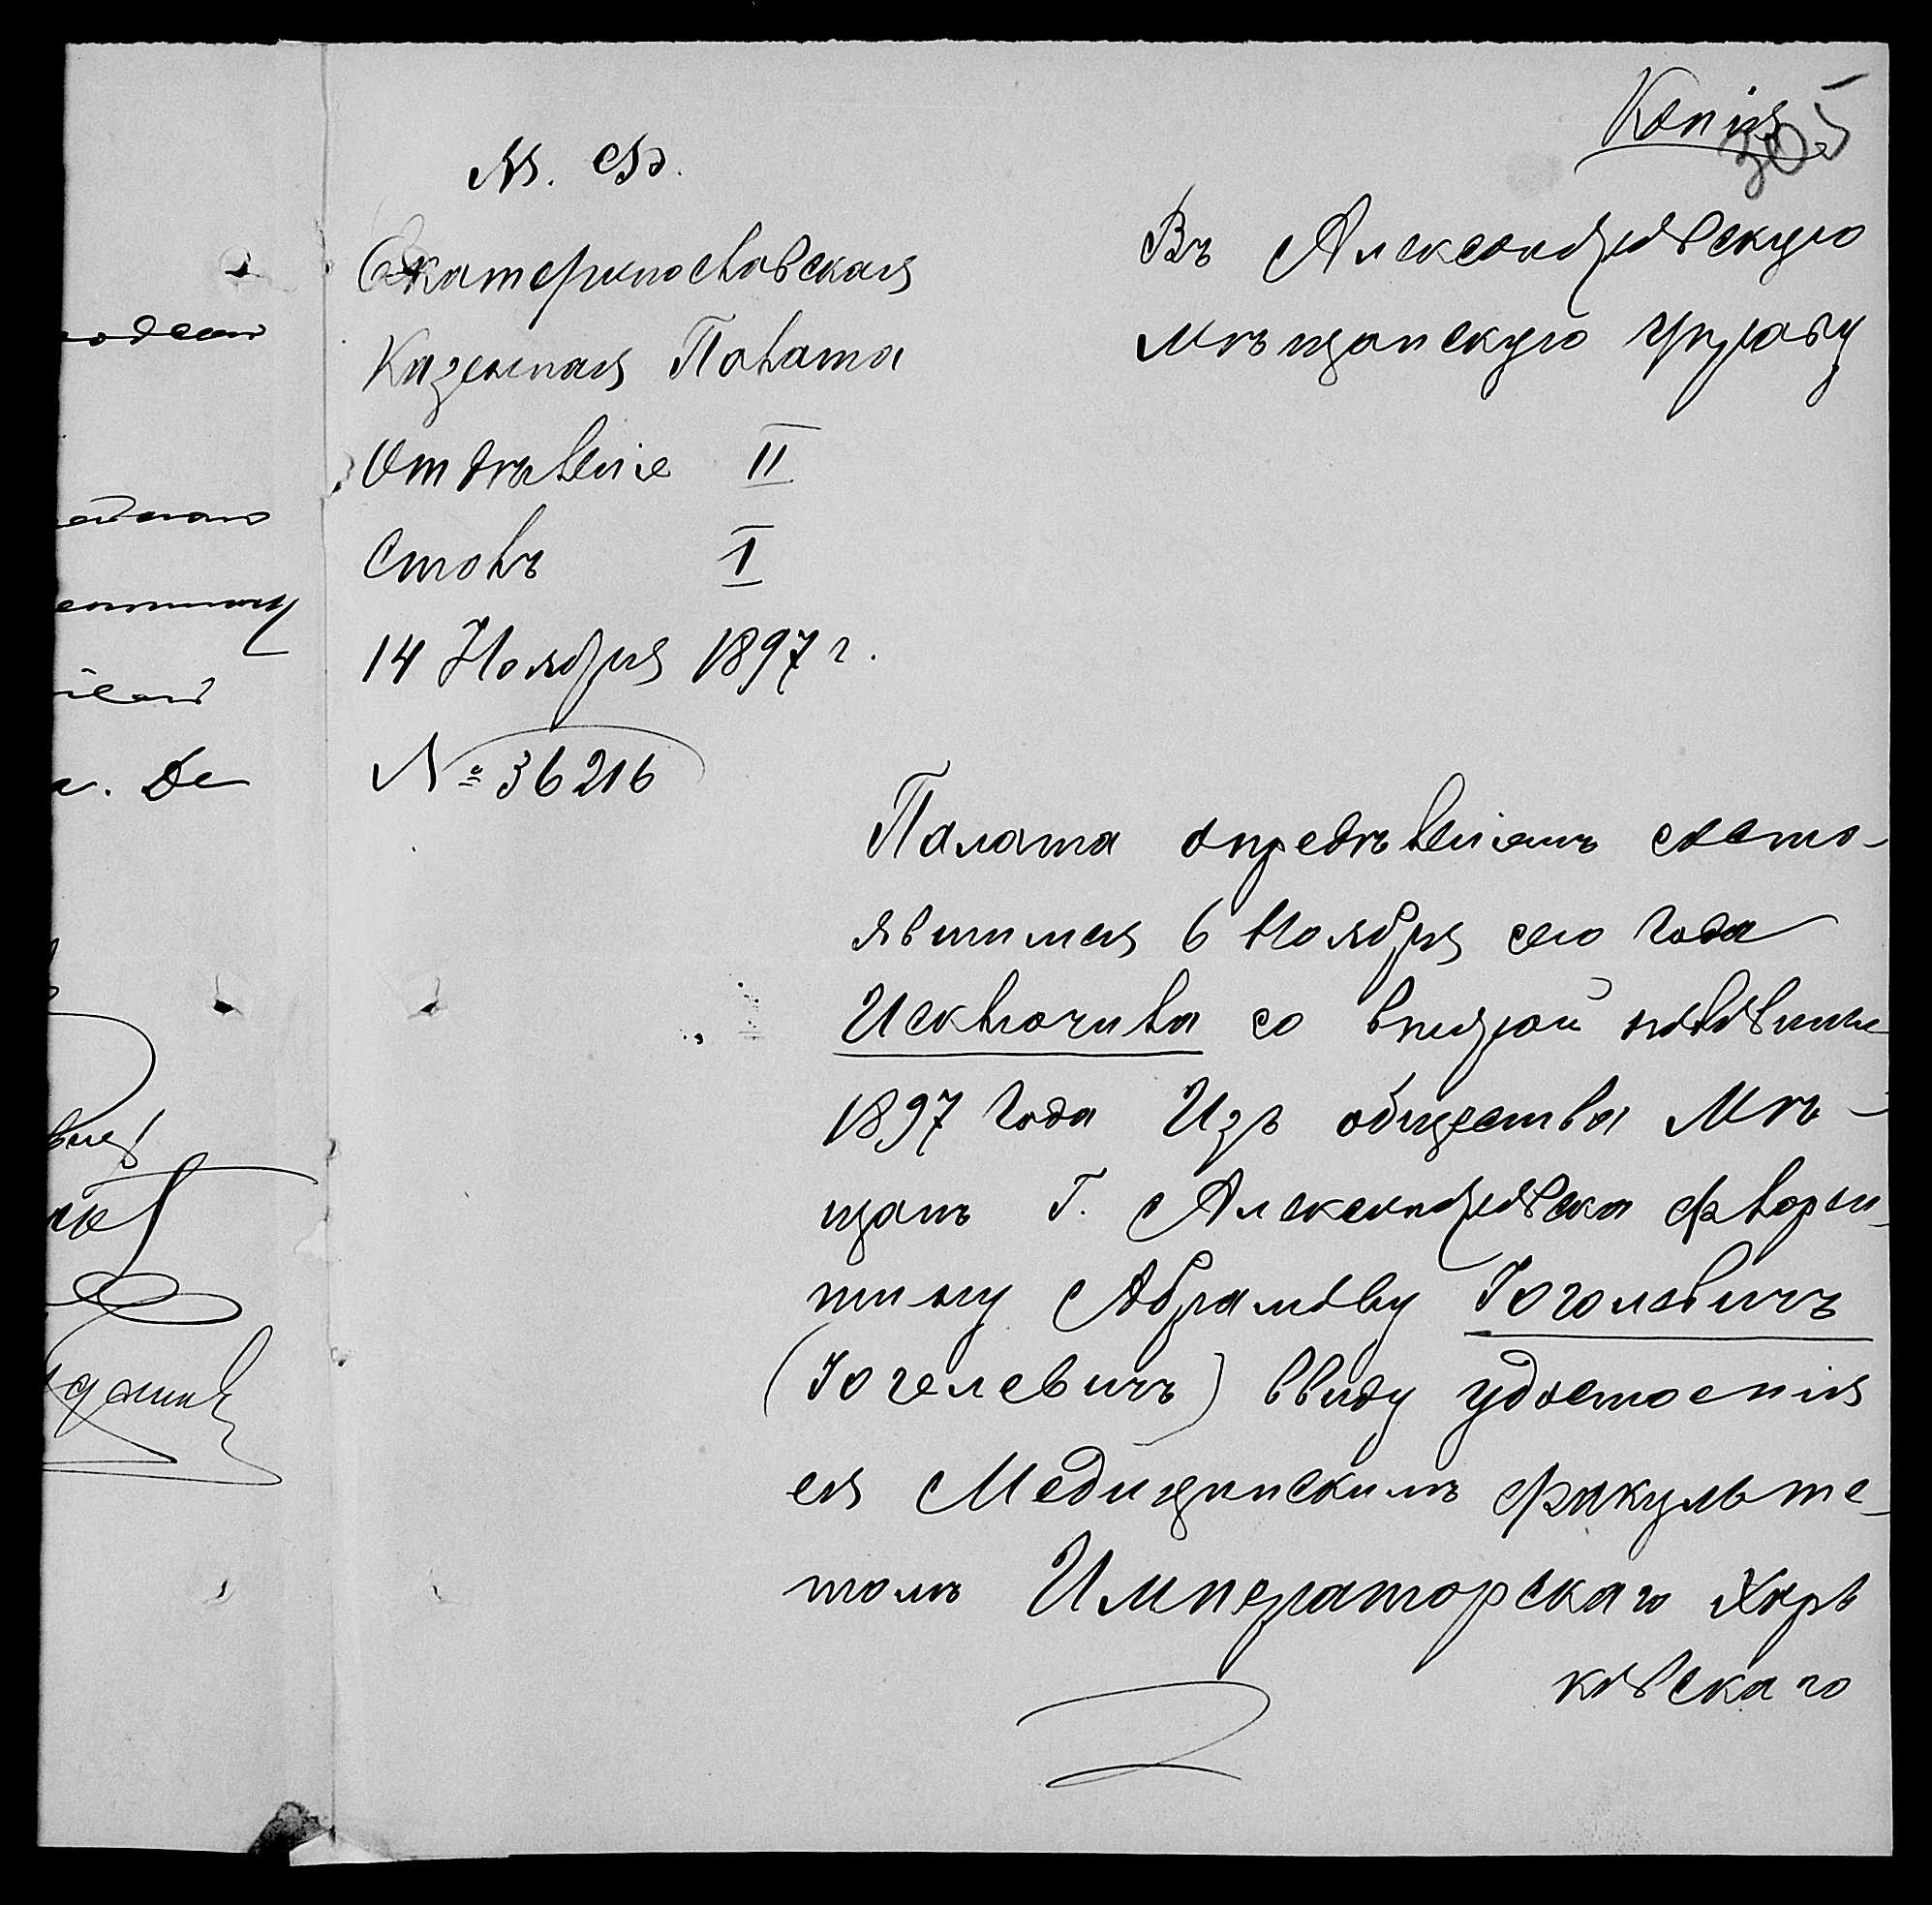 Копія
305
М. Ф.
Екатеринославская
Казенная Палата
Отдѣленіе II
Столъ I
14 Ноября 1897 г.
№ 36216
Въ Александровскую
Мѣщанскую Управу
Палата опредѣленіемъ состо-
явшимся 6 Ноября сего года
Исключила со второй половины
1897 года Изъ общества Мѣ-
щанъ Г. Александровска Флорен-
тину Абрамову Юголевичъ
(Югелевичъ) ввиду удостоенія
ея Медицинскимъ Факульте-
томъ Императорскаго Харь
ковскаго